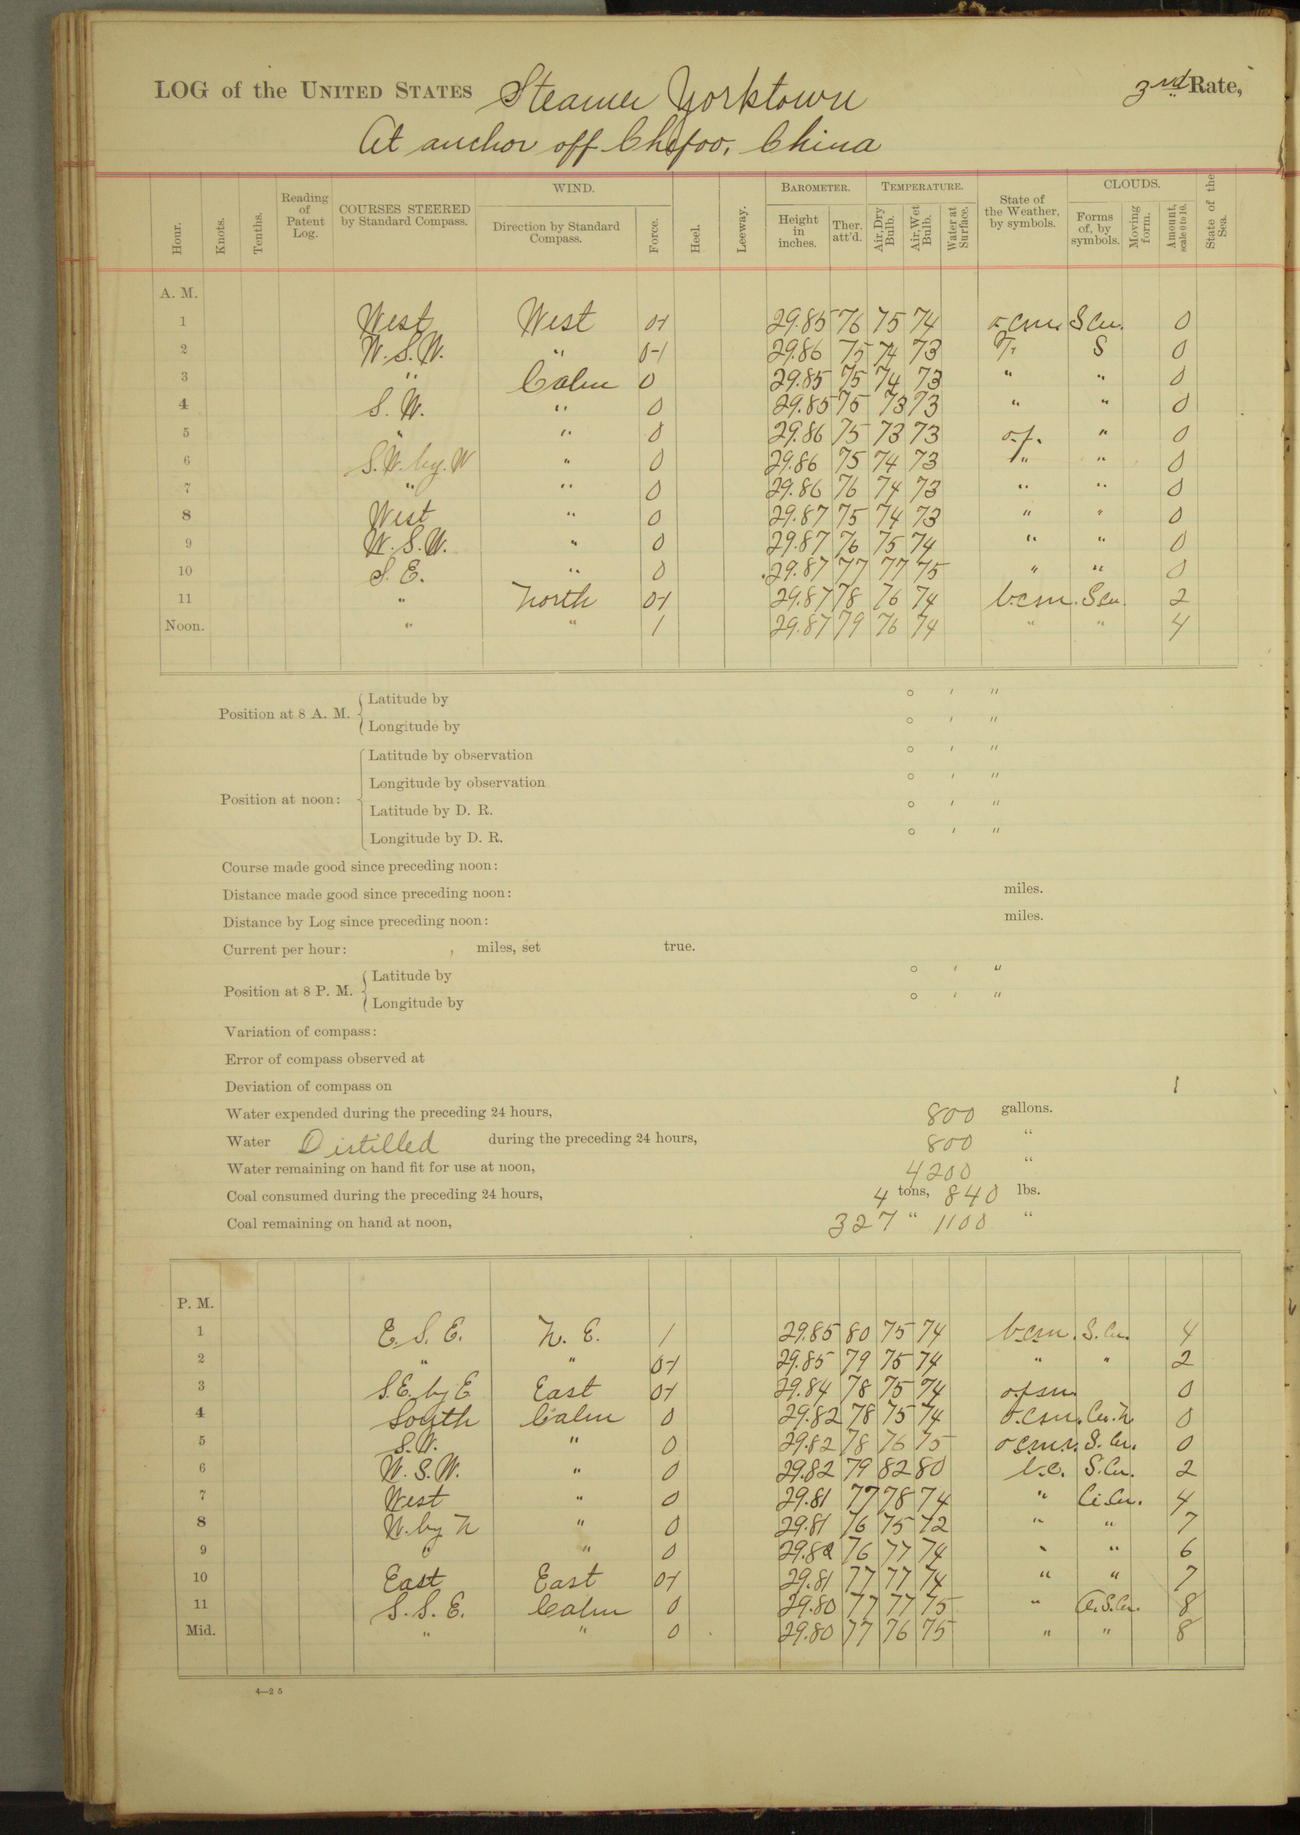 LOG of the UNITED STATES Steamer Yorktown 3rd Rate,
At anchor off Chefoo, China
Hour. Knots. Tenths. Reading of Patent Log. COURSES STEERED by Standard Compass. WIND. Direction by Standard Compass. Force. Heel. Leeway. BAROMETER. Height in inches. Ther. att'd. TEMPERATURE. Air, Dry Bulb. Air, Wet Bulb. Water at Surface. State of the Weather, by symbols. CLOUDS. Forms of, by symbols. Moving form. Amount, scale 0 to 10. State of the Sea.
A. M.
1 West West 0-1 29.85 76 75 74 o.c.m. S.Cu. 0
2 W.S.W. " 0-1 29.86 75 74 73 S 0
3 " Calm 0 29.85 75 74 73 " " 0
4 S.W. " 0 29.85 75 73 73 " " 0
5 " " 0 29.86 75 73 73 o.f. " 0
6 S.W. by W " 0 29.86 75 74 73 " " 0
7 " " 0 29.86 76 74 73 " " 0
8 West " 0 29.87 75 74 73 " " 0
9 W.S.W. " 0 29.87 76 75 74 " " 0
10 S.E. " 0 29.87 77 77 75 " " 0
11 " North 0-1 29.87 78 76 74 b.c.m. S.Cu. 2
Noon. " " 1 29.87 79 76 74 " " 4
Position at 8 A. M. Latitude by ° ′ ″
Longitude by ° ′ ″
Position at noon: Latitude by observation ° ′ ″
Longitude by observation ° ′ ″
Latitude by D. R. ° ′ ″
Longitude by D. R. ° ′ ″
Course made good since preceding noon:
Distance made good since preceding noon: miles.
Distance by Log since preceding noon: miles.
Current per hour: , miles, set true.
Position at 8 P. M. Latitude by ° ′ ″
Longitude by ° ′ ″
Variation of compass:
Error of compass observed at
Deviation of compass on
Water expended during the preceding 24 hours, 800 gallons.
Water Distilled during the preceding 24 hours, 800 "
Water remaining on hand fit for use at noon, 4200 "
Coal consumed during the preceding 24 hours, 4 tons, 840 lbs.
Coal remaining on hand at noon, 327 " 1100 "
P. M.
1 E.S.E. N.E. 1 29.85 80 75 74 b.c.m. S.Cu. 4
2 " " 0-1 29.85 79 75 74 " " 2
3 S.E. by E East 0-1 29.84 78 75 74 0
4 South Calm 0 29.82 78 75 74 o.c.m. Cu.N. 0
5 S.W. " 0 29.82 78 76 75 S.Cu. 0
6 W.S.W. " 0 29.82 79 82 80 b.c. S.Cu. 2
7 West " 0 29.81 77 78 74 " Ci.Cu. 4
8 W. by N " 0 29.81 76 75 72 " " 7
9 " " 0 76 77 74 " " 6
10 East East 0-1 29.81 77 77 74 " " 7
11 S.S.E. Calm 0 29.80 77 77 75 " 8
Mid. " " 0 29.80 77 76 75 " " 8
4—25